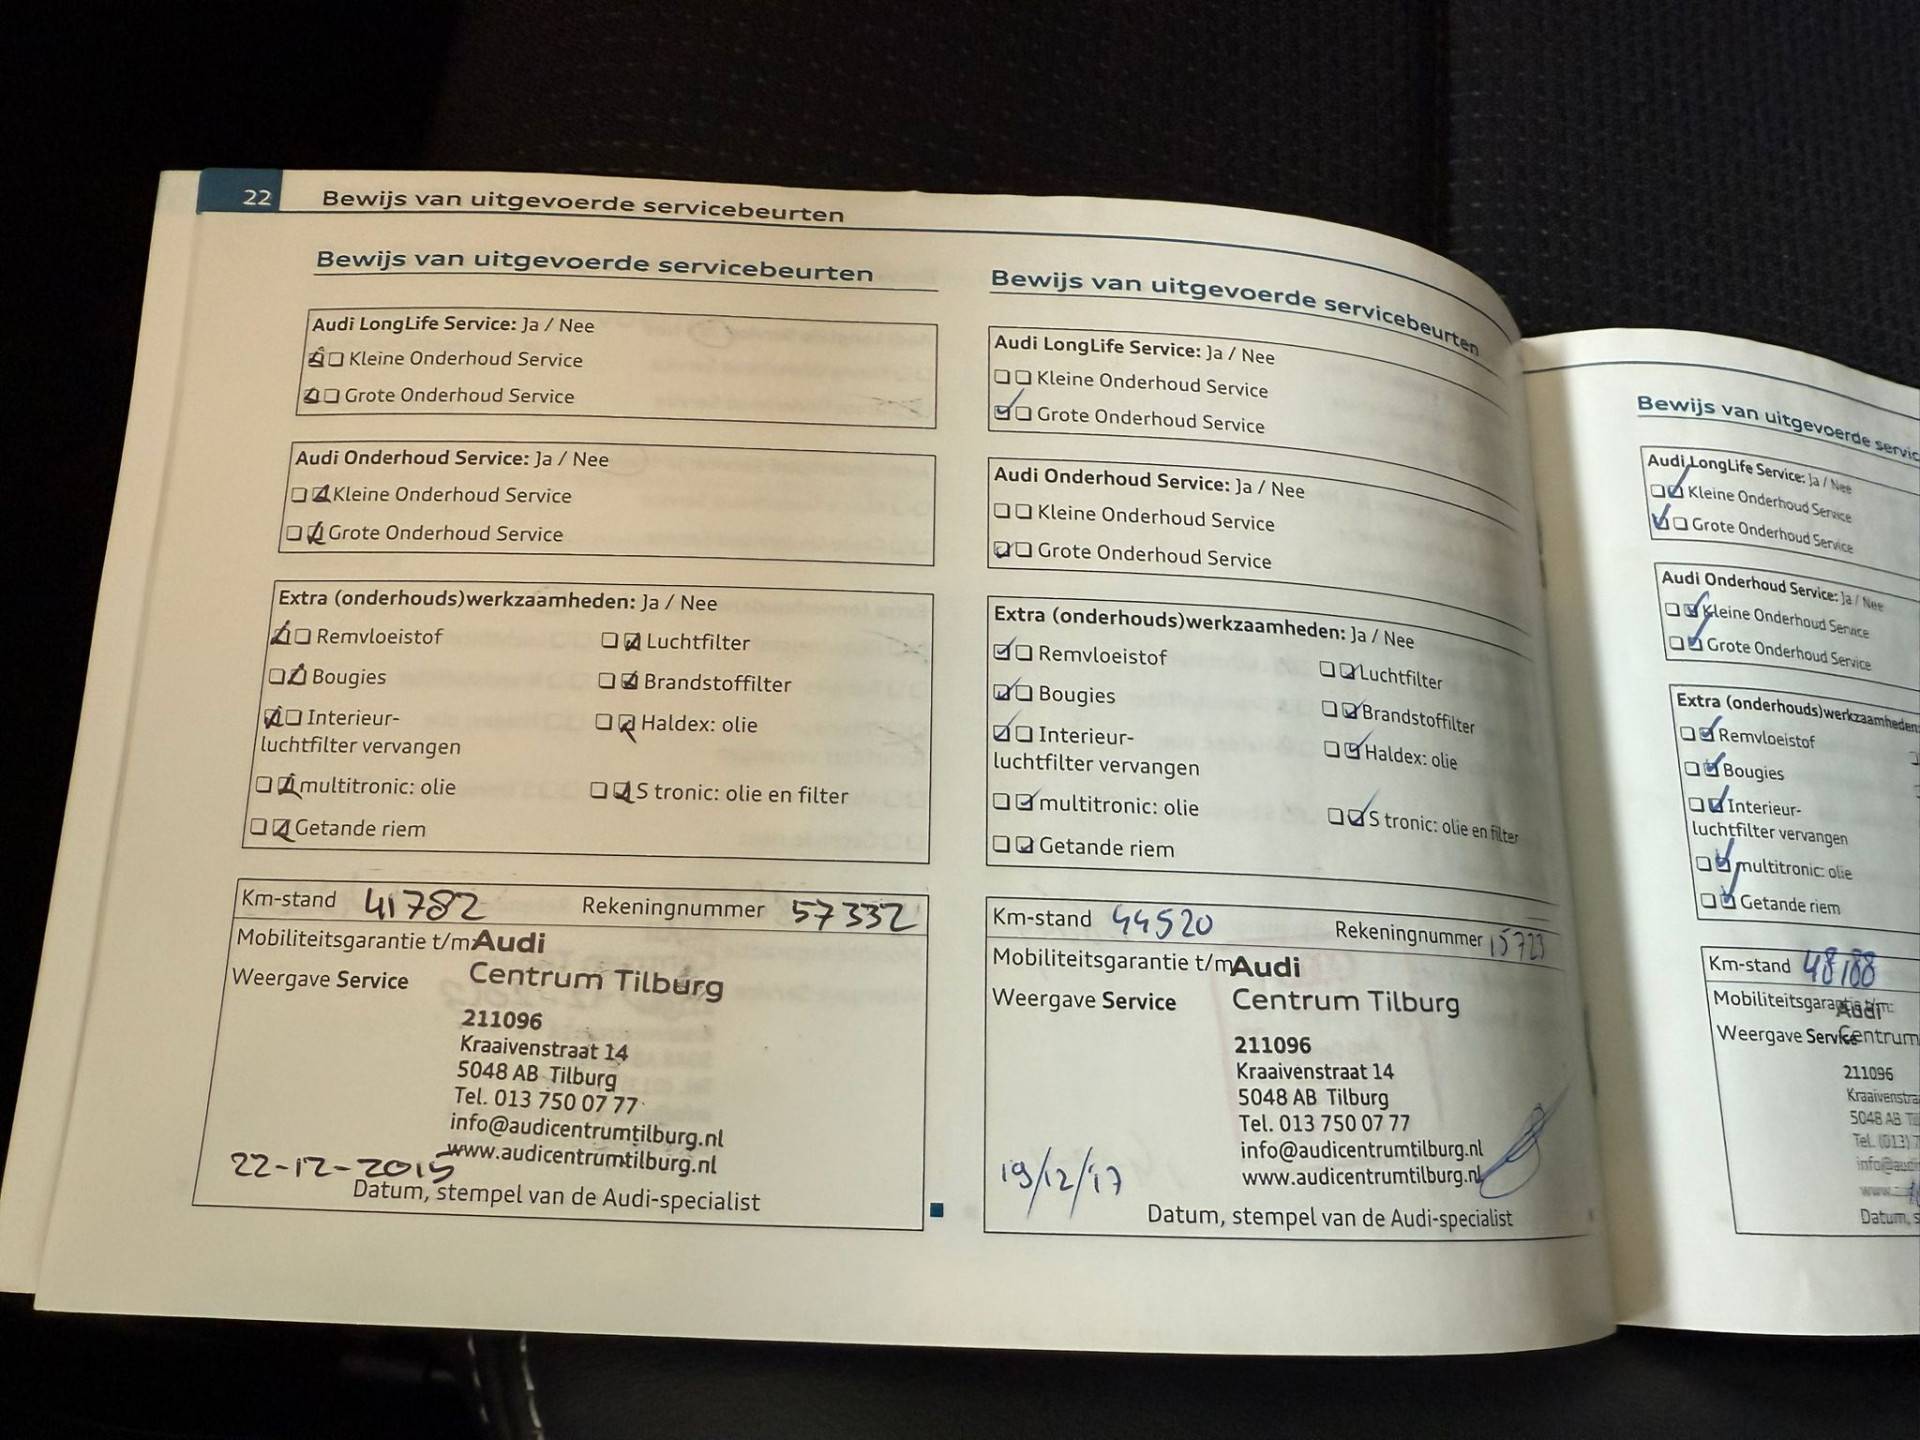 22
Bewijs van uitgevoerde servicebeurten
Bewijs van uitgevoerde servicebeurten
Audi LongLife Service: Ja / Nee
Kleine Onderhoud Service
Grote Onderhoud Service
Audi Onderhoud Service: Ja / Nee
Kleine Onderhoud Service
Grote Onderhoud Service
Extra (onderhouds)werkzaamheden: Ja / Nee
Remvloeistof Luchtfilter
Bougies Brandstoffilter
Interieur- Haldex: olie
luchtfilter vervangen
multitronic: olie S tronic: olie en filter
Getande riem
Km-stand 41782 Rekeningnummer 57332
Mobiliteitsgarantie t/m Audi
Weergave Service Centrum Tilburg
211096
Kraaivenstraat 14
5048 AB Tilburg
Tel. 013 750 07 77
info@audicentrumtilburg.nl
www.audicentrumtilburg.nl
22-12-2015
Datum, stempel van de Audi-specialist
Bewijs van uitgevoerde servicebeurten
Audi LongLife Service: Ja / Nee
Kleine Onderhoud Service
Grote Onderhoud Service
Audi Onderhoud Service: Ja / Nee
Kleine Onderhoud Service
Grote Onderhoud Service
Extra (onderhouds)werkzaamheden: Ja / Nee
Remvloeistof Luchtfilter
Bougies Brandstoffilter
Interieur- Haldex: olie
luchtfilter vervangen
multitronic: olie S tronic: olie en filter
Getande riem
Km-stand 44520 Rekeningnummer 15723
Mobiliteitsgarantie t/m Audi
Weergave Service Centrum Tilburg
211096
Kraaivenstraat 14
5048 AB Tilburg
Tel. 013 750 07 77
info@audicentrumtilburg.nl
www.audicentrumtilburg.nl
19/12/17
Datum, stempel van de Audi-specialist
Bewijs van uitgevoerde servic
Audi LongLife Service: Ja / Nee
Kleine Onderhoud Service
Grote Onderhoud Service
Audi Onderhoud Service: Ja / Nee
Kleine Onderhoud Service
Grote Onderhoud Service
Extra (onderhouds)werkzaamheden:
Remvloeistof
Bougies
Interieur-
luchtfilter vervangen
multitronic: olie
Getande riem
Km-stand 48188
Mobiliteitsgarantie t/m: Audi
Weergave Service Centrum
211096
Kraaivenstra
5048 AB
Tel. (013) 7
info@audi
www.
Datum, s